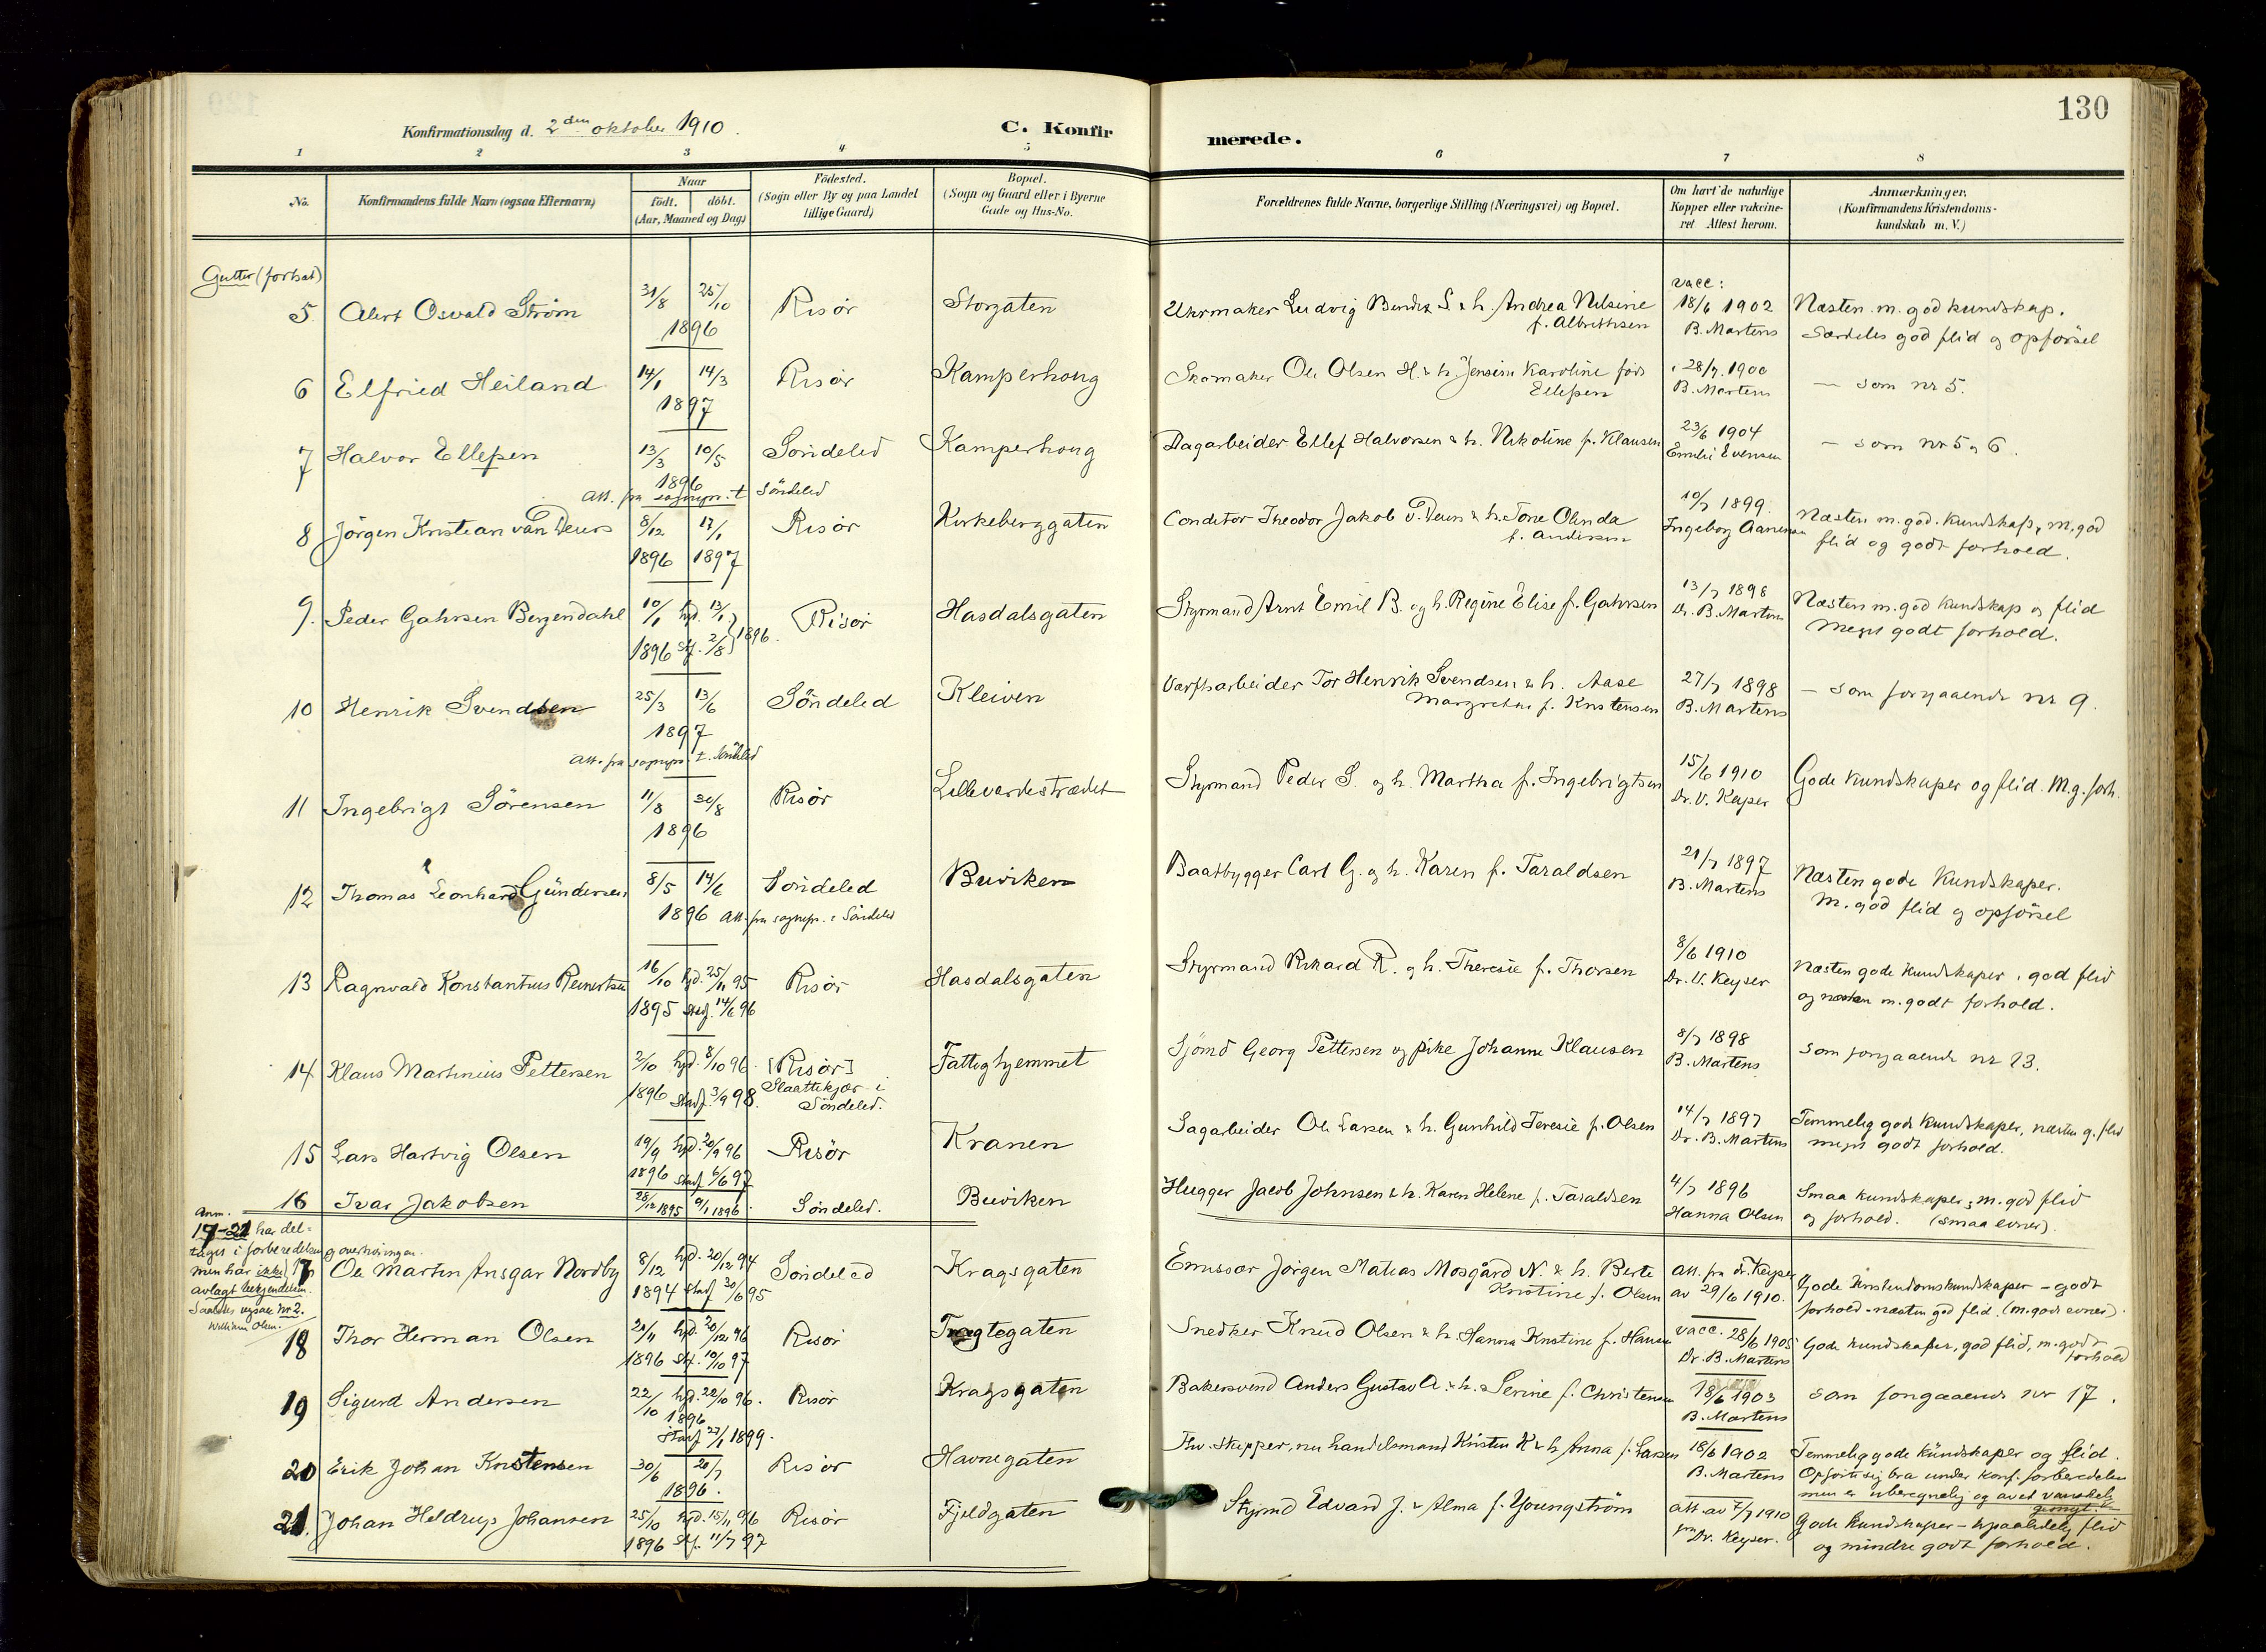 130
Konfirmationsdag d. 2den oktober 1910.
C. Konfirmerede.
1 2 3 4 5 6 7 8
No.
Konfirmandens fulde Navn (ogsaa Efternavn)
Naar
födt. döbt.
(Aar, Maaned og Dag)
Födested.
(Sogn eller By og paa Landet
tillige Gaard)
Bopæl.
(Sogn og Gaard eller i Byerne
Gade og Hus-No.
Forældrenes fulde Navne, borgerlige Stilling (Næringsvei) og Bopæl.
Om havt de naturlige
Kopper eller vakcine-
ret Attest herom.
Anmærkninger.
(Konfirmandens Kristendoms-
kundskab m. V.)
Gutter (fortsat)
5 Alert Osvald Strøm 31/8 25/10 1896 Risör Storgaten
Uhrmaker Ludvig S. & h. Andrea Nilsine
f. Albrethsen
vacc:
18/6 1902
B. Martens
Næsten m. god kundskap.
Særdeles god flid og opförsel
6 Elfried Heiland 14/1 14/3 1897 Risör Kamperhoug
Skomaker Ole Olsen H. & h. Jensine Karoline föd
Ellefsen
28/7. 1900
B. Martens
— som nr 5.
7 Halvor Ellefsen 13/3 10/5 1896 Söndeled Kamperhoug
att. fra sognepr. t Söndeled
Dagarbeider Ellef Halvorsen & h. Nikoline f. Klausen
23/6 1904
Emilie Evensen
— som nr 5 og 6.
8 Jörgen Kristian van Deurs 8/12 1896 17/1 1897 Risör Kirkeberggaten
Conditor Theodor Jakob v. Deurs & h. Tone Olinda
f. Andersen
10/7 1899.
Ingeborg Aanensen
Næsten m. god. kundskap, m. god
flid og godt forhold.
9. Peder Gahrsen Bergendahl 10/1 1896 hjd. 13/1 stf. 2/8 1896. Risör Hasdalsgaten
Styrmand Arnt Emil B. og h. Regine Elise f. Gahrsen
13/7 1898
Dr. B. Martens
Næsten m. god kundskap og flid
Meget godt forhold.
10 Henrik Svendsen 25/3 13/6 1897 Söndeled Kleiven
att. fra sognepr. t. Söndeled
Værftsarbeider Tor Henrik Svendsen & h. Aase
Margrethe f. Kristensen
27/7 1898
B. Martens
— som forgaaende nr 9.
11 Ingebrigt Sörensen 11/8 30/8 1896 Risör Lillevardestrædet
Styrmand Peder S. og h. Martha f. Ingebrigtsen
15/6 1910
Dr. V. Keyser
Gode kundskaper og flid. M.g. forh.
12 Thomas Leonhard Gundersen 8/5 14/6 1896 Söndeled Buviken
att. fra sognepr. i Söndeled
Baatbygger Carl G. og h. Karen f. Taraldsen
21/7 1897
B. Martens
Næsten gode kundskaper.
M. god flid og opförsel
13 Ragnvald Konstantius Reinertsen 16/10 1895 hjd. 25/11 95 stadf. 14/6 96 Risör Hasdalsgaten
Styrmand Rikard R. og h. Theresie f. Thorsen
8/6 1910
Dr. V. Keyser
Næsten gode kundskaper, god flid
og næsten m. godt forhold.
14 Klaus Martinius Pettersen 2/10 1896 hjd. 8/10 96. stadf. 3/9 98. [Risör] Fattighjemmet
Slaattekjær i
Söndeled.
Sjömd Georg Pettersen og pike Johanne Klausen
8/7 1898
B. Martens
som forgaaende nr 13.
15 Lars Hartvig Olsen 19/9 1896 hjd. 20/9 96 stadf 6/6 97 Risör Kranen
Sagarbeider Ole Larsen & h. Gunhild Teresie f. Olsen
14/7 1897
Dr. B. Martens
Temmelig gode kundskaper, næsten g. flid
meget godt forhold.
16 Ivar Jakobsen 28/12 1895 9/1 1896. Söndeled. Buviken
Hugger Jacob Johnsen & h. Karen Helene f. Taraldsen
4/7 1896
Hanna Olsen
Smaa kundskaper; m. god flid
og forhold. (smaa evner).
Anm.
17-21 har del-
taget i forberedelsen og overhöringen.
men har ikke
avlagt bekjendelsen.
Saaledes ogsaa nr 2.
William Olsen.
17 Ole Martin Ansgar Nordby 8/12 1894 hjd. 20/12 94 stadf 30/6 95 Söndeled Kragsgaten
Emissær Jörgen Matias Mosgård N. & h. Berte
Kristine f. Olsen
Att. fra dr. Keyser
av 29/6 1910.
Gode kristendomskundskaper - godt
forhold - næsten god flid. (m. gode evner).
18 Thor Herman Olsen 21/11 1896 hjd. 20/12 96 stf. 10/10 97 Risör Tragtegaten
Snedker Knud Olsen & h. Hanna Kristine f. Hansen
vacc. 28/6 1905
Dr. B. Martens
Gode kundskaper, god flid, m. godt
forhold
19 Sigurd Andersen 22/10 1896 hjd. 22/10 96. stadf 27/1 1899. Risör Kragsgaten
Bakersvend Anders Gustav A. & h. Serine f. Christensen
18/6 1903
B. Martens
som forgaaende nr 17.
20 Erik Johan Kristensen 30/6 20/7 1896. Risör Havnegaten
Fhv. skipper, nu handelsmand Kristen K. & h Anna f. Larsen
18/6 1902
B. Martens
Temmelig gode kundskaper og flid.
Opförte sig bra under konf. forberedelsen
men er uberegnelig og av et vanskelig
gemyt.
21. Johan Heldrup Johansen 25/10 1896 hjd. 15/11 96 stf. 11/7 97 Risör Fjeldgaten
Styrmd Edvard J. & Alma f. Youngström
att av 7/7 1910
fra Dr. Keyser.
Gode kundskaper - upaalidelig flid
og mindre godt forhold.